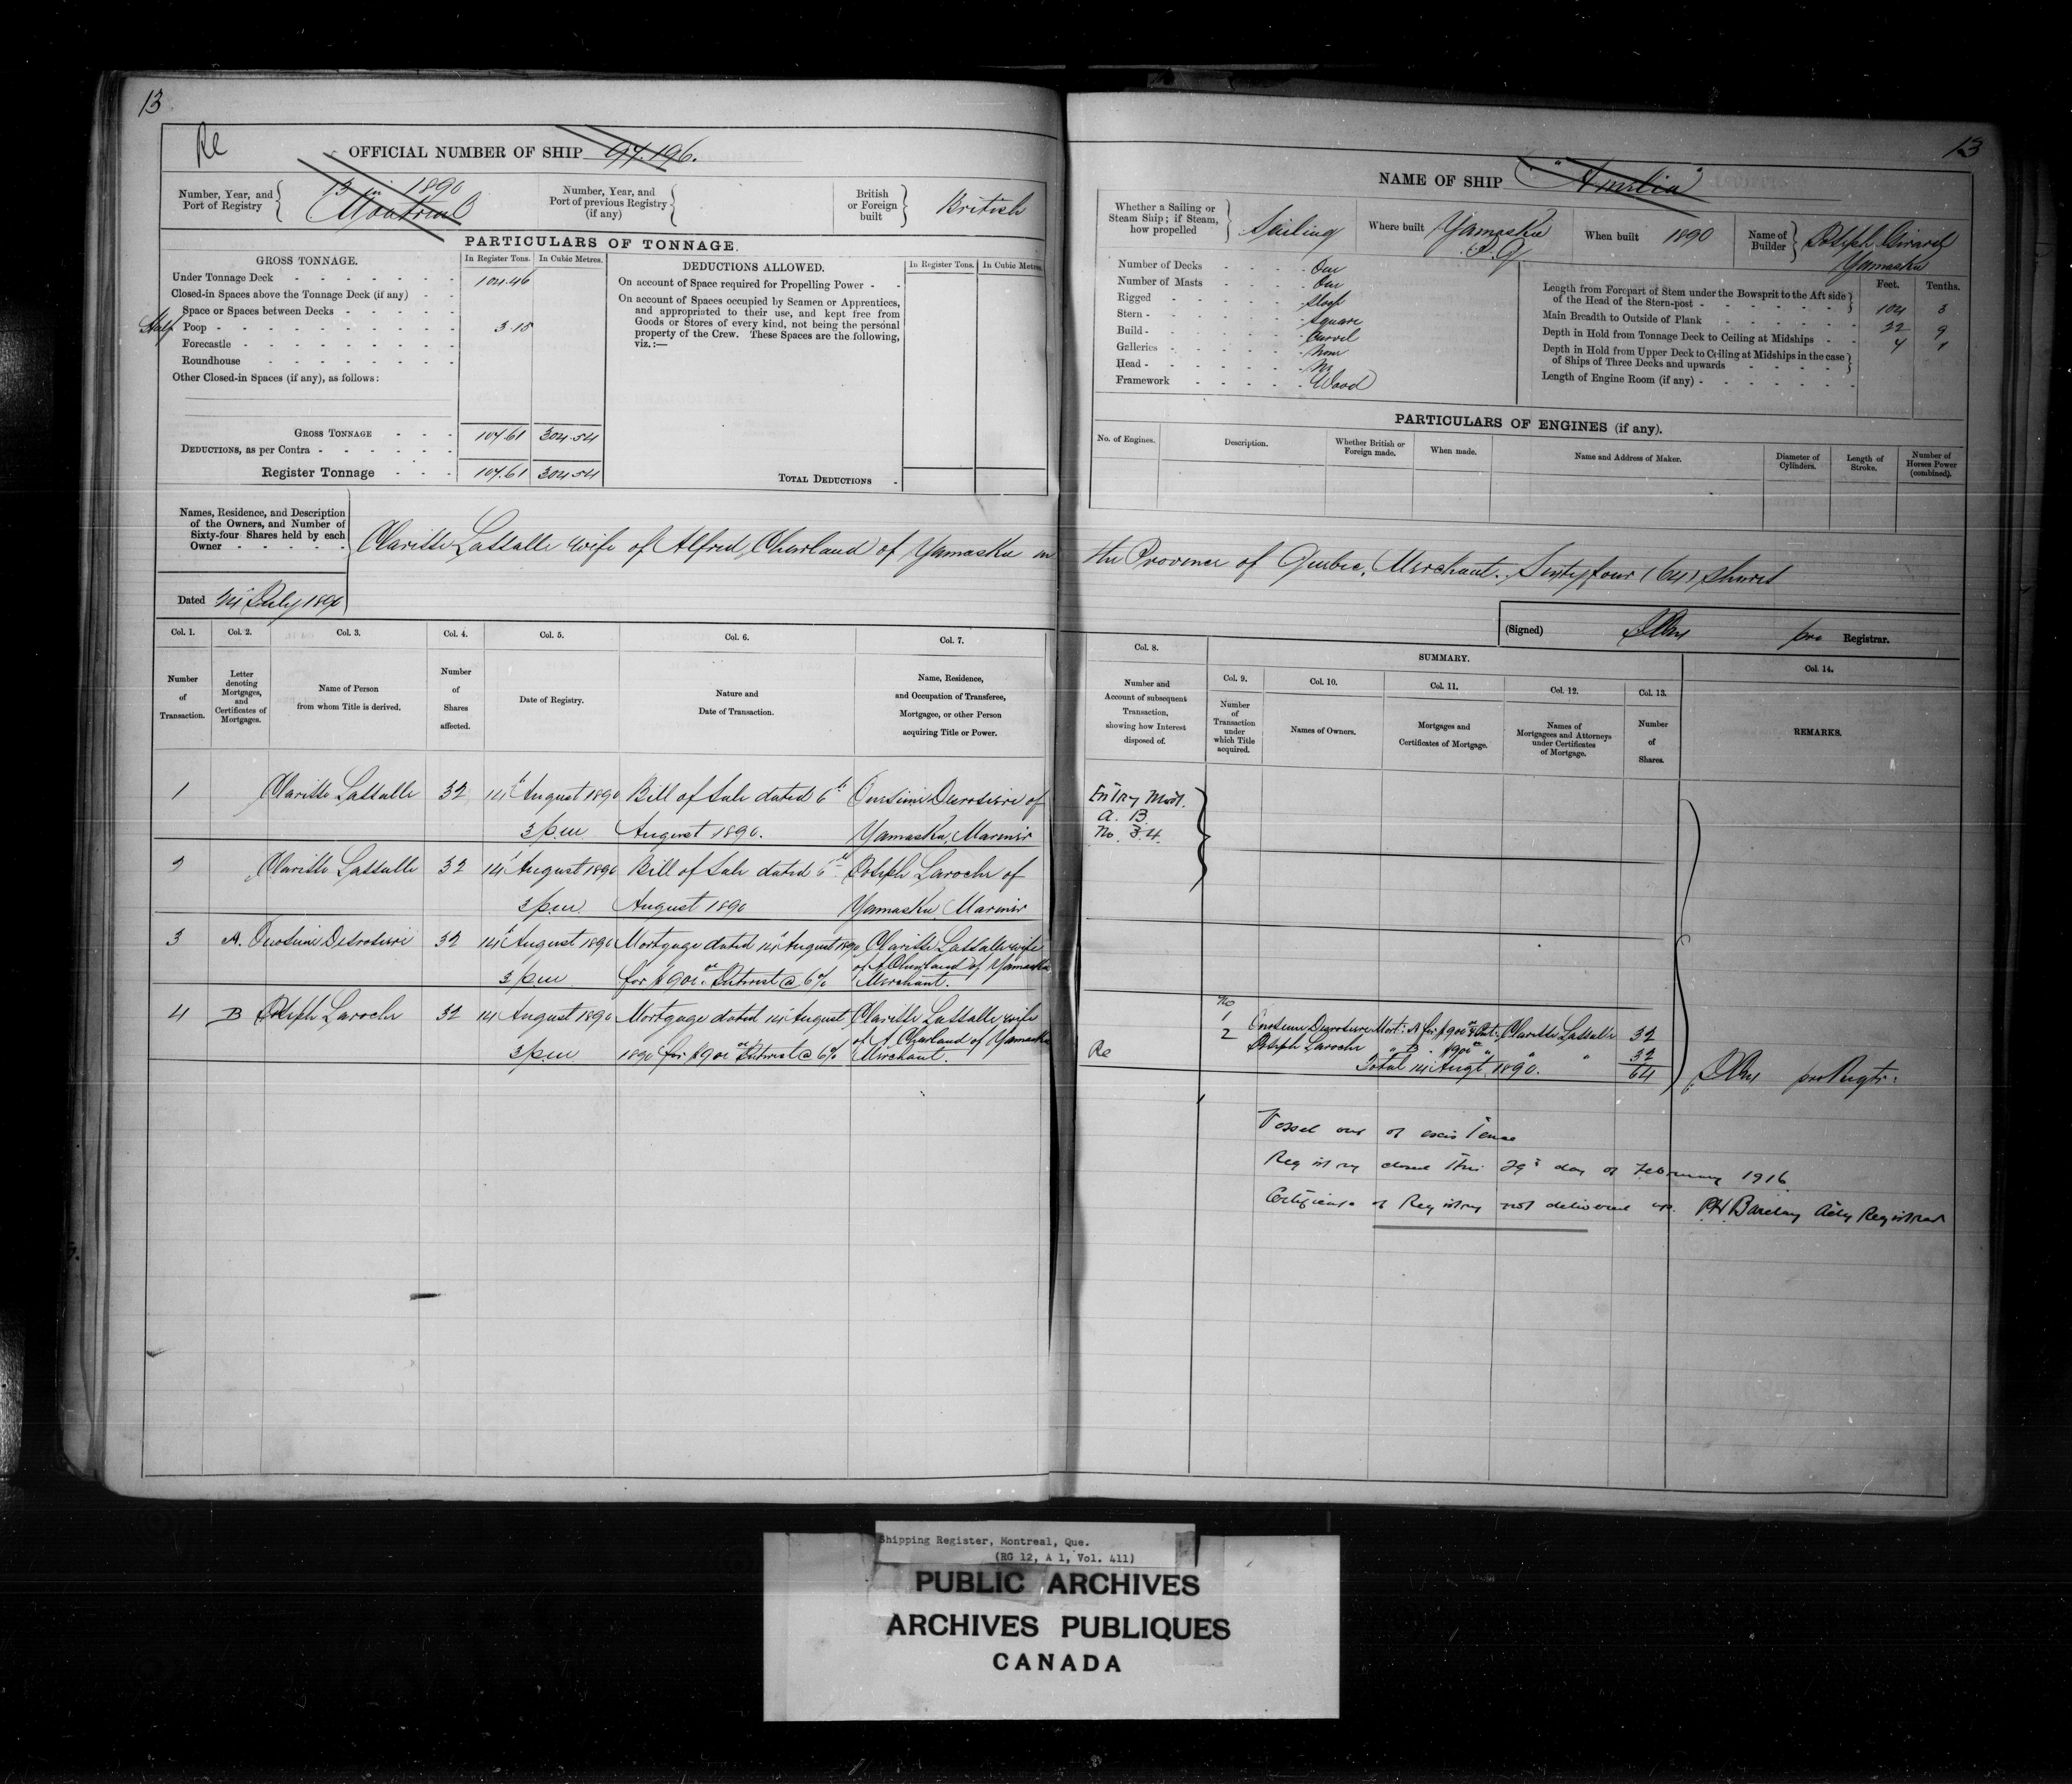 13
Re
OFFICIAL NUMBER OF SHIP 97.196.
Number, Year, and Port of Registry
13 in 1890
Montreal
Number, Year, and Port of previous Registry (if any)
British or Foreign built
British
PARTICULARS OF TONNAGE.
GROSS TONNAGE.
In Register Tons.
In Cubic Metres.
Under Tonnage Deck 104.46
Closed-in Spaces above the Tonnage Deck (if any)
Space or Spaces between Decks
Half Poop 3.15
Forecastle
Roundhouse
Other Closed-in Spaces (if any), as follows:
GROSS TONNAGE 107.61 304.54
DEDUCTIONS, as per Contra
Register Tonnage 107.61 304.54
DEDUCTIONS ALLOWED.
In Register Tons.
In Cubic Metres.
On account of Space required for Propelling Power
On account of Spaces occupied by Seamen or Apprentices,
and appropriated to their use, and kept free from
Goods or Stores of every kind, not being the personal
property of the Crew. These Spaces are the following,
viz.:—
TOTAL DEDUCTIONS
13
NAME OF SHIP "Amelia"
Whether a Sailing or Steam Ship; if Steam, how propelled
Sailing
Where built
Yamaska
P.Q
When built
1890
Name of Builder
Joseph Girard
Yamaska
Number of Decks One
Number of Masts One
Rigged Sloop
Stern Square
Build Carvel
Galleries None
Head No
Framework Wood
Feet. Tenths.
Length from Forepart of Stem under the Bowsprit to the Aft side
of the Head of the Stern-post 104 3
Main Breadth to Outside of Plank 22 9
Depth in Hold from Tonnage Deck to Ceiling at Midships 4 1
Depth in Hold from Upper Deck to Ceiling at Midships in the case
of Ships of Three Decks and upwards
Length of Engine Room (if any)
PARTICULARS OF ENGINES (if any).
No. of Engines.
Description.
Whether British or Foreign made.
When made.
Name and Address of Maker.
Diameter of Cylinders.
Length of Stroke.
Number of Horses Power (combined).
Names, Residence, and Description
of the Owners, and Number of
Sixty-four Shares held by each
Owner
Clarisse Lassalle wife of Alfred Charland of Yamaska in the Province of Quebec, Merchant. Sixty four (64) shares
Dated 24 July 1890
(Signed) pro Registrar.
Col. 1.
Col. 2.
Col. 3.
Col. 4.
Col. 5.
Col. 6.
Col. 7.
Number of Transaction.
Letter denoting Mortgages, and Certificates of Mortgages.
Name of Person from whom Title is derived.
Number of Shares affected.
Date of Registry.
Nature and Date of Transaction.
Name, Residence, and Occupation of Transferee, Mortgagee, or other Person acquiring Title or Power.
Col. 8.
SUMMARY.
Col. 9.
Col. 10.
Col. 11.
Col. 12.
Col. 13.
Col. 14.
Number and Account of subsequent Transaction, showing how Interest disposed of.
Number of Transaction under which Title acquired.
Names of Owners.
Mortgages and Certificates of Mortgage.
Names of Mortgagees and Attorneys under Certificates of Mortgage.
Number of Shares.
REMARKS.
1 Clarisse Lassalle 32 14th August 1890 Bill of Sale dated 6th Onesime Desrosiere of
3 p.m August 1890. Yamaska, Mariner
2 Clarisse Lassalle 32 14 August 1890 Bill of Sale dated 6th Joseph Laroche of
3 p.m. August 1890 Yamaska, Mariner
3 A. Onesime Desrosiere 32 14 August 1890 Mortgage dated 14 August 1890 Clarisse Lassalle wife
3 p.m for $900.00 Interest @ 6% of A Charland of Yamaska
Merchant.
4 B Joseph Laroche 32 14 August 1890 Mortgage dated 14 August Clarisse Lassalle wife
3 p.m 1890 for $900.00 Interest @ 6% of A Charland of Yamaska
Merchant.
Entry Mort.
A. B.
No. 3.4.
Re
No
1 Onesime Desrosiere Mort: A for $900.00 & Int: Clarisse Lassalle 32
2 Joseph Laroche " B " $900.00 " " " 32
Total 14 Augt 1890. 64
pro Regtr:
Vessel out of existence
Registry closed this 29th day of February 1916.
Certificate of Registry not delivered up. PH Barclay Actg Registrar
Shipping Register, Montreal, Que.
(RG 12, A 1, Vol. 411)
PUBLIC ARCHIVES
ARCHIVES PUBLIQUES
CANADA